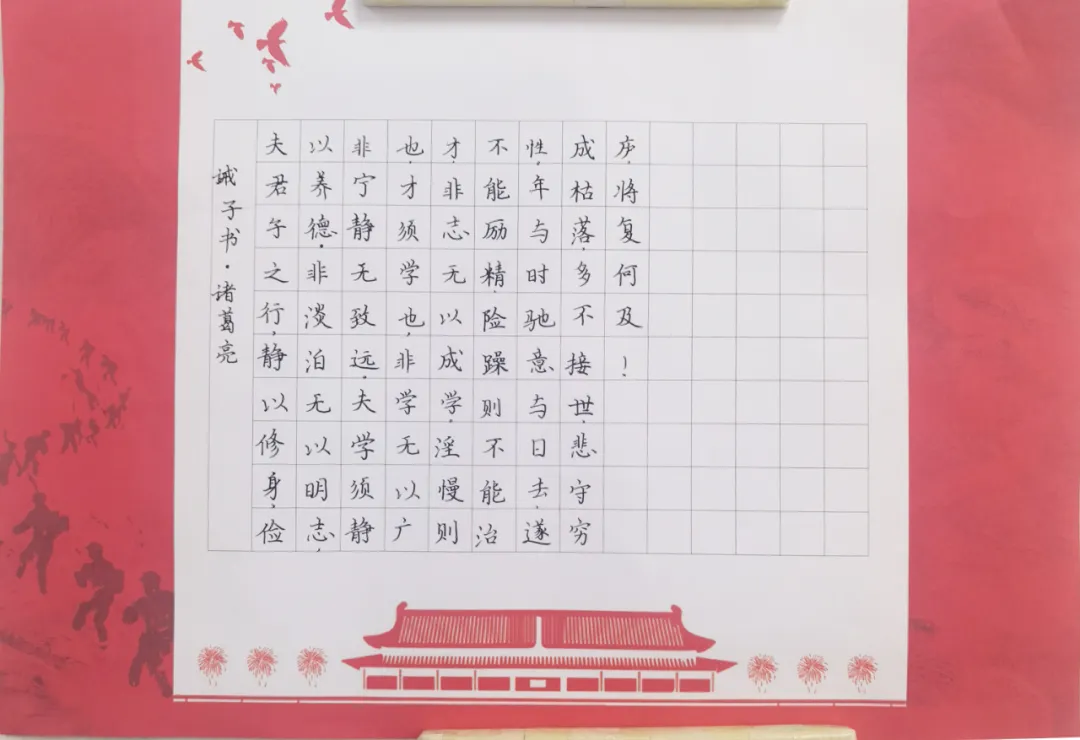 诫子书·诸葛亮
夫君子之行,静以修身,俭
以养德.非淡泊无以明志,
非宁静无致远.夫学须静
也,才须学也,非学无以广
才,非志无以成学,淫慢则
不能励精,险躁则不能治
性,年与时驰意与日去,遂
成枯落,多不接世,悲守穷
庐,将复何及!